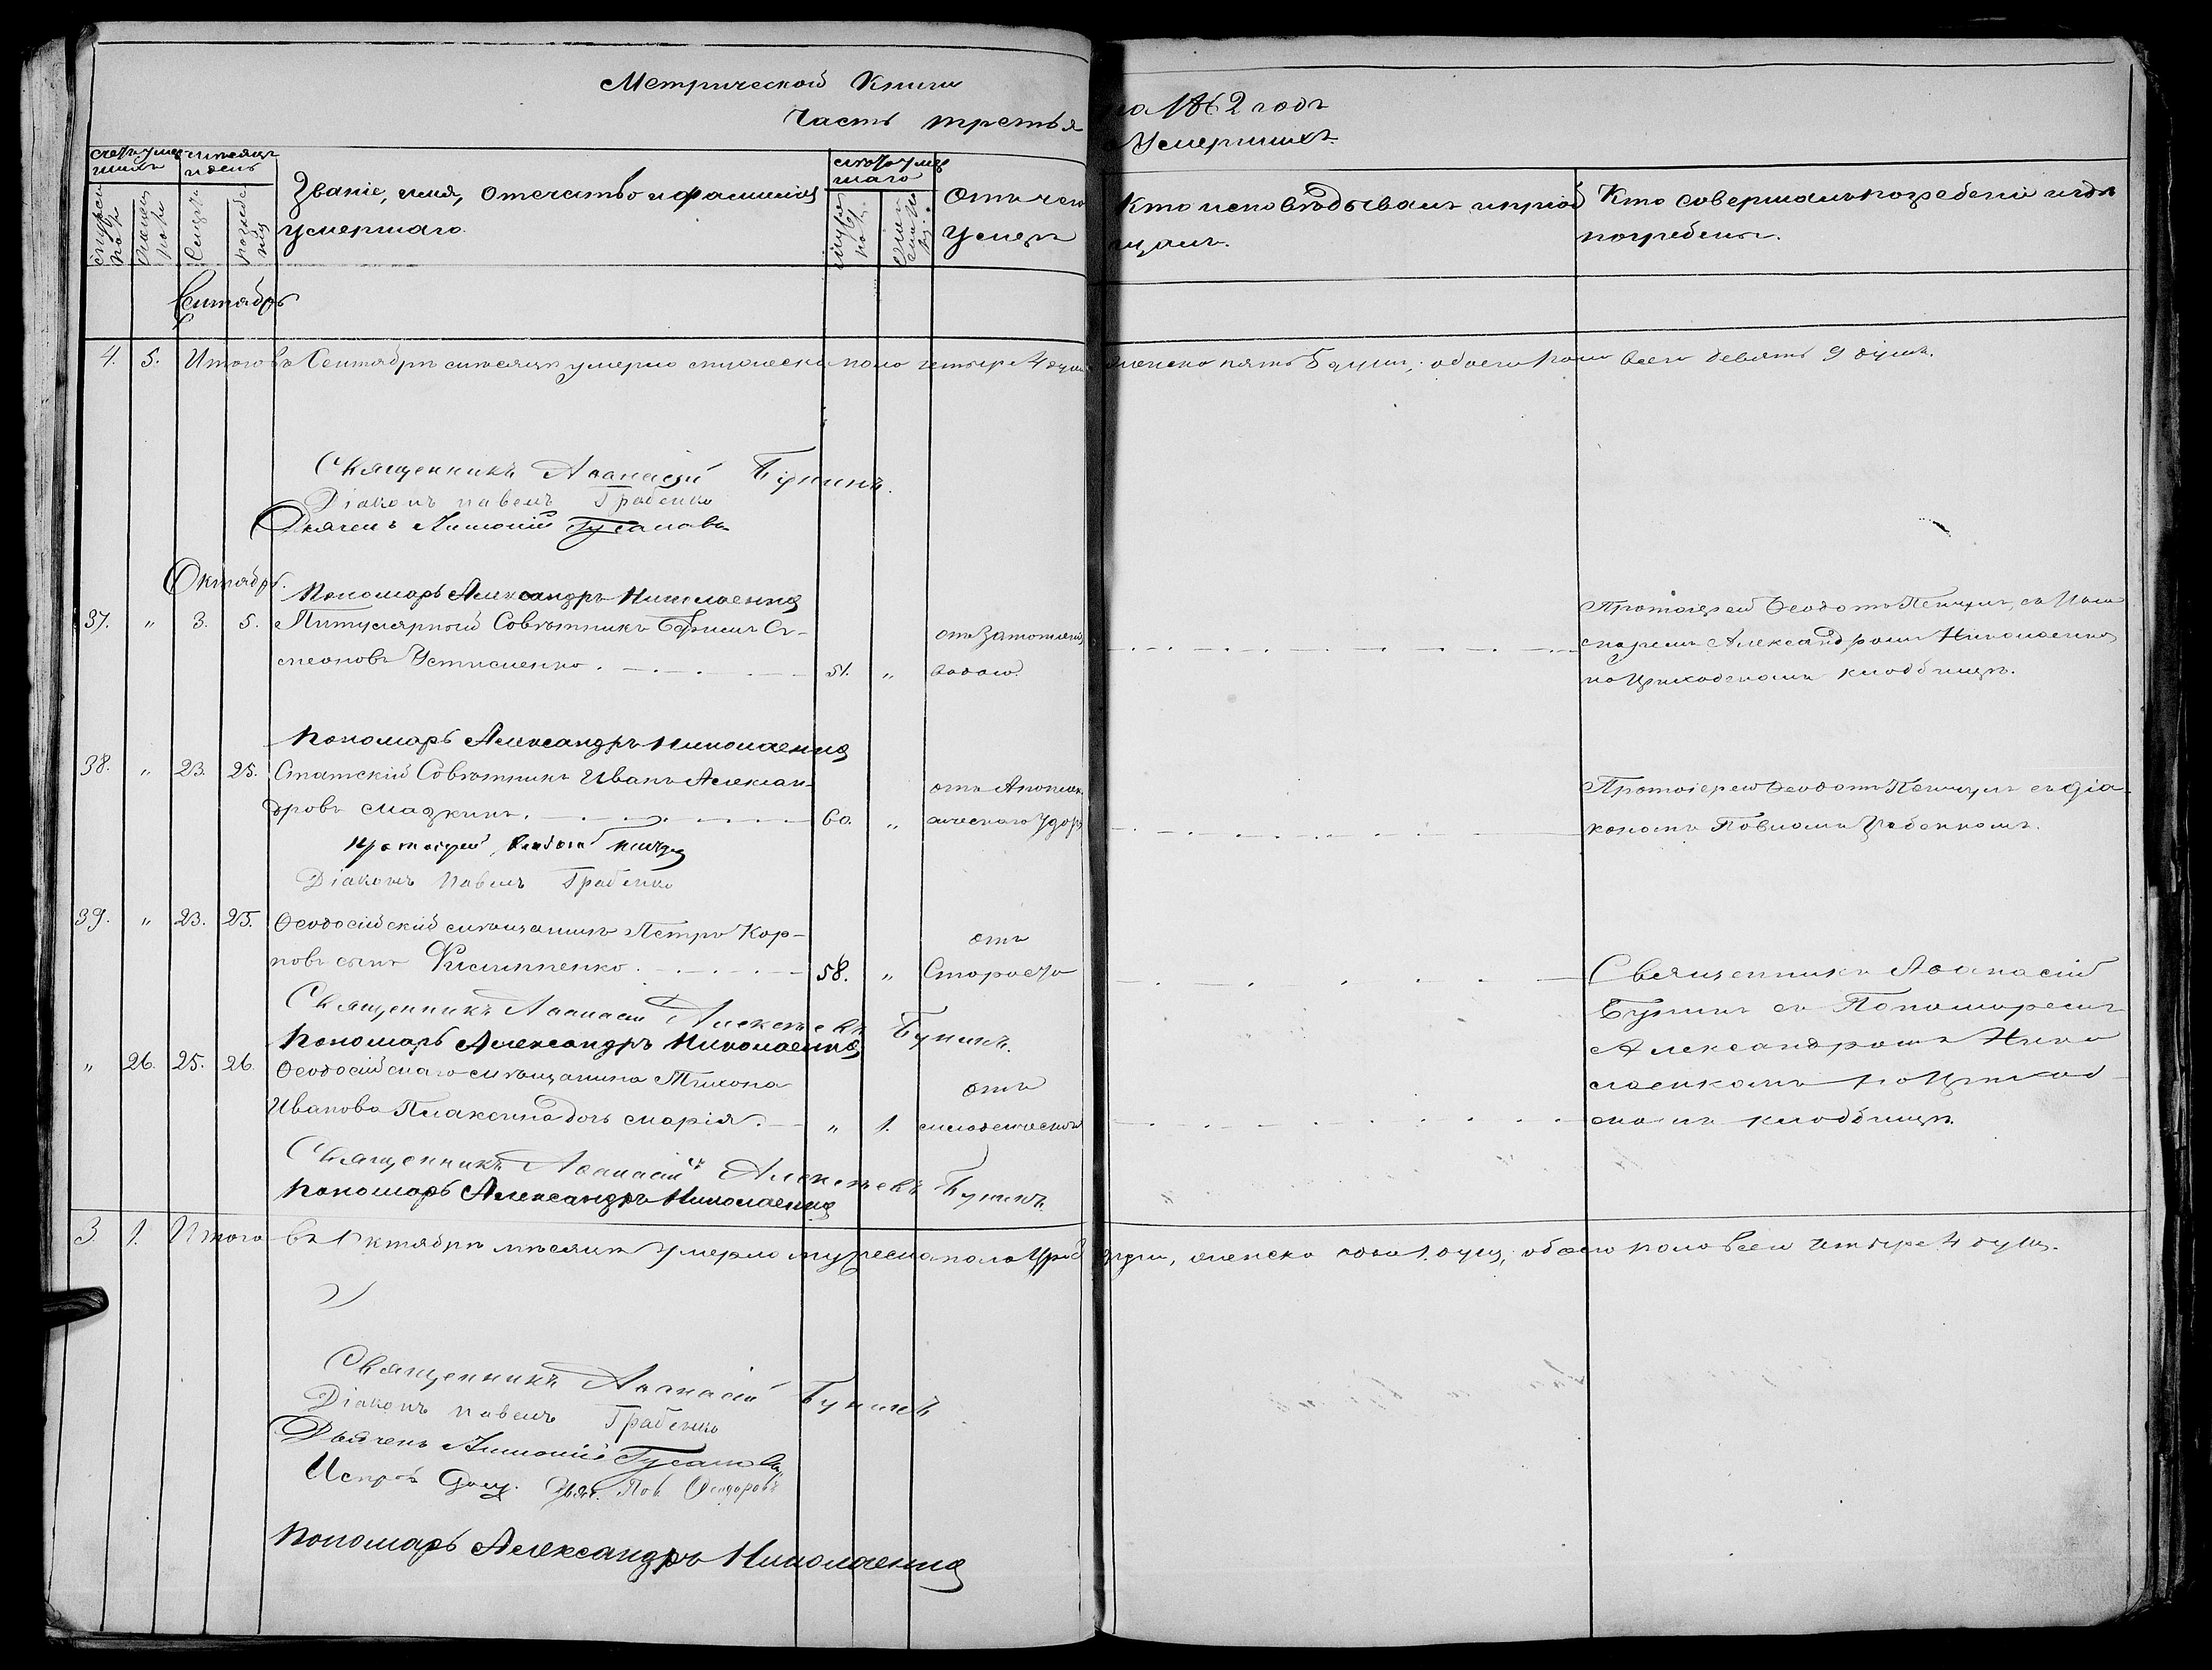 Метрической Книги
на 1862 годъ
Часть третья
Умершихъ.
счетъ умер
шихъ
мѣсяцъ
и день
Званіе, имя, отечество и фамилія
умершаго.
лѣта умер
шаго
Отъ чего
умеръ
Кто исповѣдывалъ и пріоб
щалъ.
Кто совершалъ погребеніе и гдѣ
погребены.
Сентябрь
4. 5. Итого въ Сентябрѣ мѣсяцѣ умерло мужеска пола четыре 4 души женска пять 5 душъ, обоего пола всего девять 9 душъ.
Священникъ Аѳанасій Бунинъ.
Діаконъ Павелъ Грабенко
Дьячекъ Антоній Гусаковъ
Октябрь.
Пономарь Александръ Николаенко
37. " 3. 5. Титулярный Совѣтникъ Ефимъ Си-
меоновъ Устименко. 51. " отъ Затопленія
водою.
Протоіерей Ѳеодотъ съ Поно
маремъ Александромъ Николаенко
на Приходскомъ кладбищѣ.
Пономарь Александръ Николаенко
38. " 23. 25. Статскій Совѣтникъ Иванъ Алексан-
дровъ Мазкинъ. 60. " отъ Апоплек
сическаго удара
Протоіерей Ѳеодотъ съ Діа-
кономъ Павломъ Грабенкомъ.
Протоіерей
Діаконъ Павелъ Грабенко
39. " 23. 25. Ѳеодосійскій мѣщанинъ Петръ Кар-
повъ сынъ Филиппенко. 58. " отъ
Старости
Священникъ Аѳанасій
Бунинъ съ Пономаремъ
Александромъ Нико
лаенкомъ на Приход
скомъ кладбищѣ.
Священникъ Аѳанасій Алексѣевъ Бунинъ.
Пономарь Александръ Николаенко
" 26. 25. 26. Ѳеодосійскаго мѣщанина Тихона
Иванова Плаксина дочь Марія. " 1. отъ
младенческой
Священникъ Аѳанасій Алексѣевъ Бунинъ.
Пономарь Александръ Николаенко
3. 1. Итого въ Октябрѣ мѣсяцѣ умерло мужеска пола три 3 души, женска пола 1. душа, обоего пола всего четыре 4 души.
Священникъ Аѳанасій Бунинъ
Діаконъ Павелъ Грабенко
Дьячекъ Антоній Гусаковъ
Пономарь Александръ Николаенко